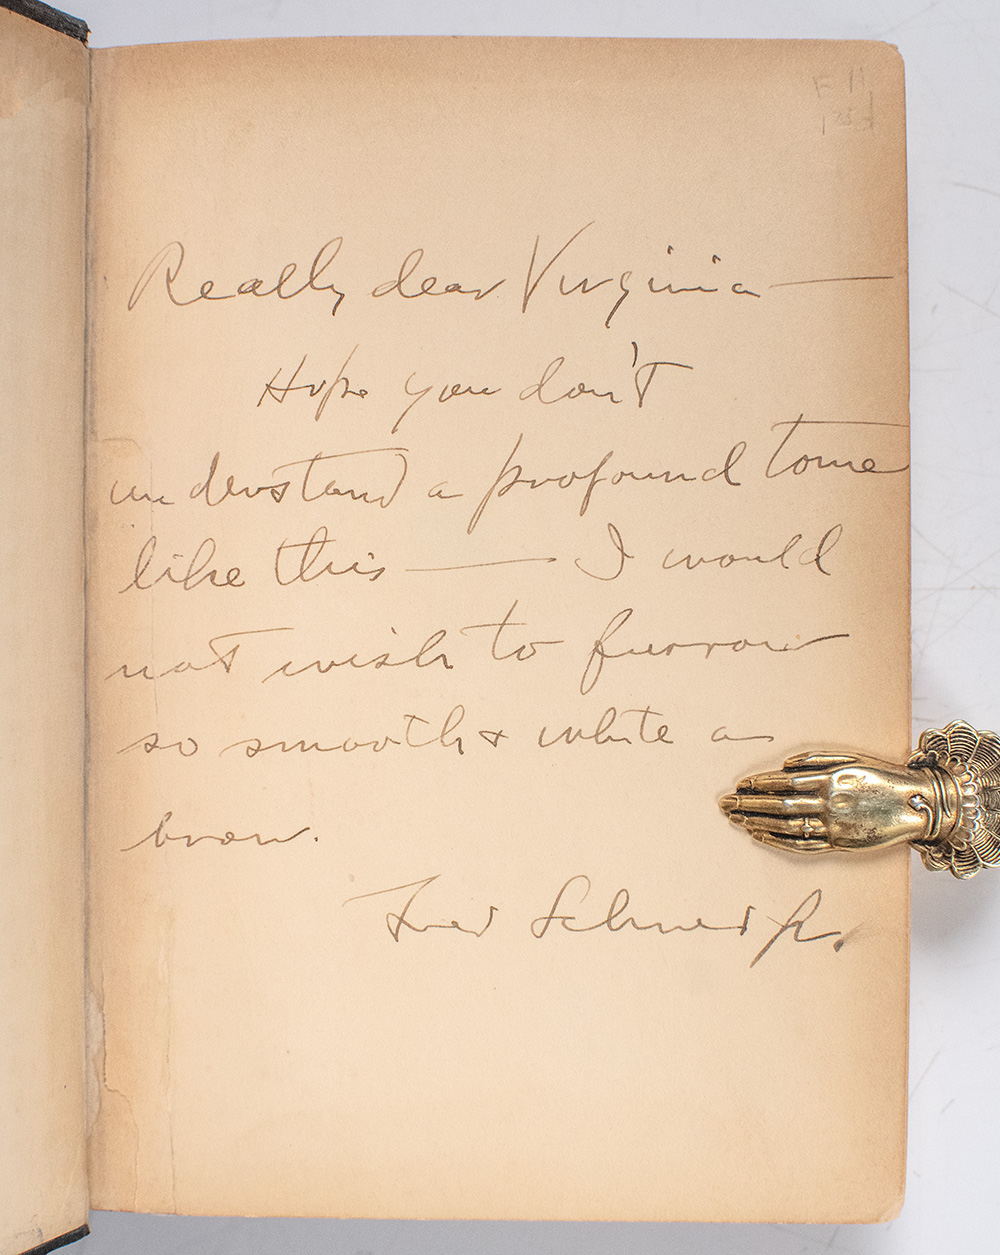 Really dear Virginia —
Hope you don't
understand a profound tome
like this — I would
not wish to furrow
so smooth & white a
brow.
Fred Schued Jr.